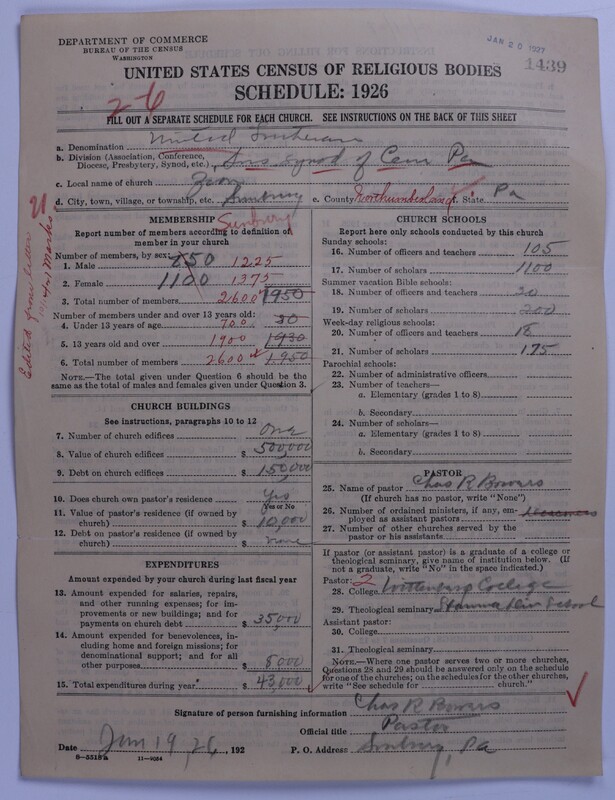 DEPARTMENT OF COMMERCE
BUREAU OF THE CENSUS
WASHINGTON
JAN 20 1927
1439
UNITED STATES CENSUS OF RELIGIOUS BODIES
SCHEDULE: 1926
2-6
FILL OUT A SEPARATE SCHEDULE FOR EACH CHURCH. SEE INSTRUCTIONS ON THE BACK OF THIS SHEET
a. Denomination United Lutheran
b. Division (Association, Conference, Diocese, Presbytery, Synod, etc.) Synod of Cen Pa
c. Local name of church Zion
d. City, town, village, or township, etc. Sunbury e. County Northumberland f. State Pa
Edited from letter
MEMBERSHIP Sunbury
Report number of members according to definition of
member in your church
Number of members, by sex:
1. Male 850 1225
2. Female 1100 1375
3. Total number of members 2600 1950
Number of members under and over 13 years old:
4. Under 13 years of age 700 20
5. 13 years old and over 1900 1930
6. Total number of members 2600 1950
NOTE.—The total given under Question 6 should be
same as the total of males and females given under Question 3.
CHURCH BUILDINGS
See instructions, paragraphs 10 to 12
7. Number of church edifices One
8. Value of church edifices $ 500,000
9. Debt on church edifices $ 150,000
10. Does church own pastor's residence Yes
(Yes or No)
11. Value of pastor's residence (if owned by
church) $ 10,000
12. Debt on pastor's residence (if owned by
church) $ none
EXPENDITURES
Amount expended by your church during last fiscal year
13. Amount expended for salaries, repairs,
and other running expenses; for im-
provements or new buildings; and for
payments on church debt $ 35,000
14. Amount expended for benevolences, in-
cluding home and foreign missions; for
denominational support; and for all
other purposes $ 8000
15. Total expenditures during year $ 43,000
CHURCH SCHOOLS
Report here only schools conducted by this church
Sunday schools:
16. Number of officers and teachers 105
17. Number of scholars 1100
Summer vacation Bible schools:
18. Number of officers and teachers 20
19. Number of scholars 200
Week-day religious schools:
20. Number of officers and teachers 18
21. Number of scholars 175
Parochial schools:
22. Number of administrative officers
23. Number of teachers—
a. Elementary (grades 1 to 8)
b. Secondary
24. Number of scholars—
a. Elementary (grades 1 to 8)
b. Secondary
PASTOR
25. Name of pastor Chas R Bowers
(If church has no pastor, write "None")
26. Number of ordained ministers, if any, em-
ployed as assistant pastors
27. Number of other churches served by the
pastor or his assistants
If pastor (or assistant pastor) is a graduate of a college or
theological seminary, give name of institution below. (If
not a graduate, write "No" in the space indicated.)
Pastor: 2
28. College College
29. Theological seminary School
Assistant pastor:
30. College
31. Theological seminary
NOTE.—Where one pastor serves two or more churches,
Questions 28 and 29 should be answered only on the schedule
for one of the churches; on the schedules for the other churches,
write "See schedule for church."
Signature of person furnishing information Chas R Bowers
Official title Pastor
Date Jan 19, 26, 192 P. O. Address Sunbury, Pa
8—5513a 11—9054